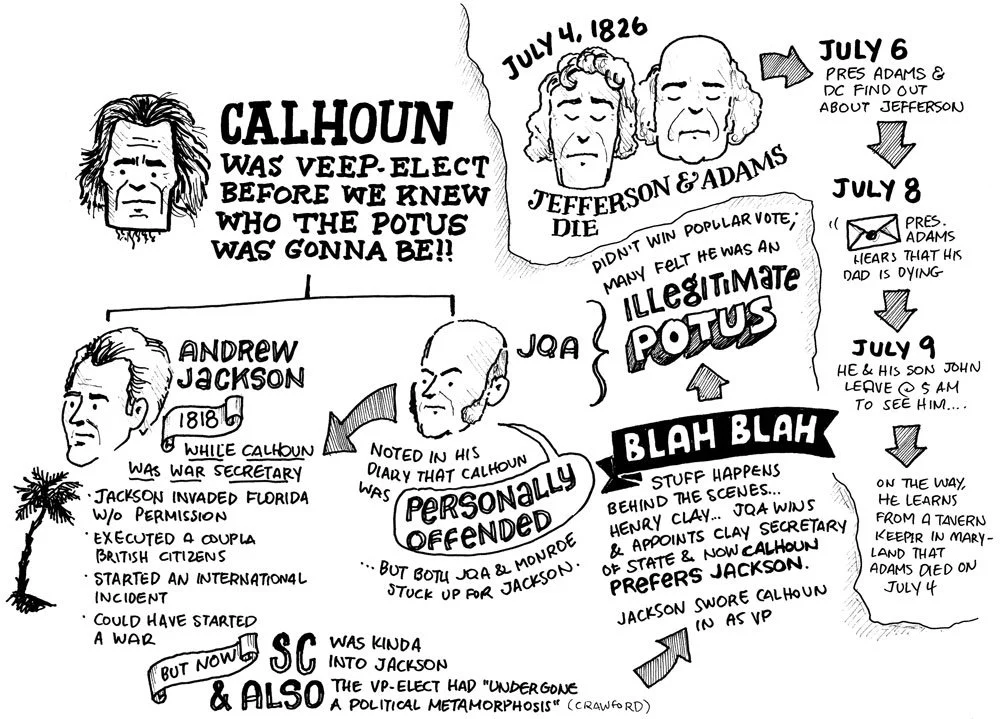 CALHOUN
WAS VEEP-ELECT
BEFORE WE KNEW
WHO THE POTUS
WAS GONNA BE!!
ANDREW
JACKSON
1818
WHILE CALHOUN
WAS WAR SECRETARY
· JACKSON INVADED FLORIDA
W/O PERMISSION
· EXECUTED A COUPLA
BRITISH CITIZENS
· STARTED AN INTERNATIONAL
INCIDENT
· COULD HAVE STARTED
A WAR
JQA
NOTED IN HIS
DIARY THAT CALHOUN
WAS
PERSONALLY
OFFENDED
...BUT BOTH JQA & MONROE
STUCK UP FOR JACKSON.
BUT NOW
SC
WAS KINDA
INTO JACKSON
& ALSO
THE VP-ELECT HAD "UNDERGONE
A POLITICAL METAMORPHOSIS" (CRAWFORD)
JACKSON SWORE CALHOUN
IN AS VP
BLAH BLAH
STUFF HAPPENS
BEHIND THE SCENES...
HENRY CLAY... JQA WINS
& APPOINTS CLAY SECRETARY
OF STATE & NOW CALHOUN
PREFERS JACKSON.
DIDN'T WIN POPULAR VOTE;
MANY FELT HE WAS AN
ILLEGITIMATE
POTUS
JULY 4, 1826
JEFFERSON & ADAMS
DIE
JULY 6
PRES ADAMS &
DC FIND OUT
ABOUT JEFFERSON
JULY 8
PRES.
ADAMS
HEARS THAT HIS
DAD IS DYING
JULY 9
HE & HIS SON JOHN
LEAVE @ 5 AM
TO SEE HIM....
ON THE WAY,
HE LEARNS
FROM A TAVERN
KEEPER IN MARY-
LAND THAT
ADAMS DIED ON
JULY 4